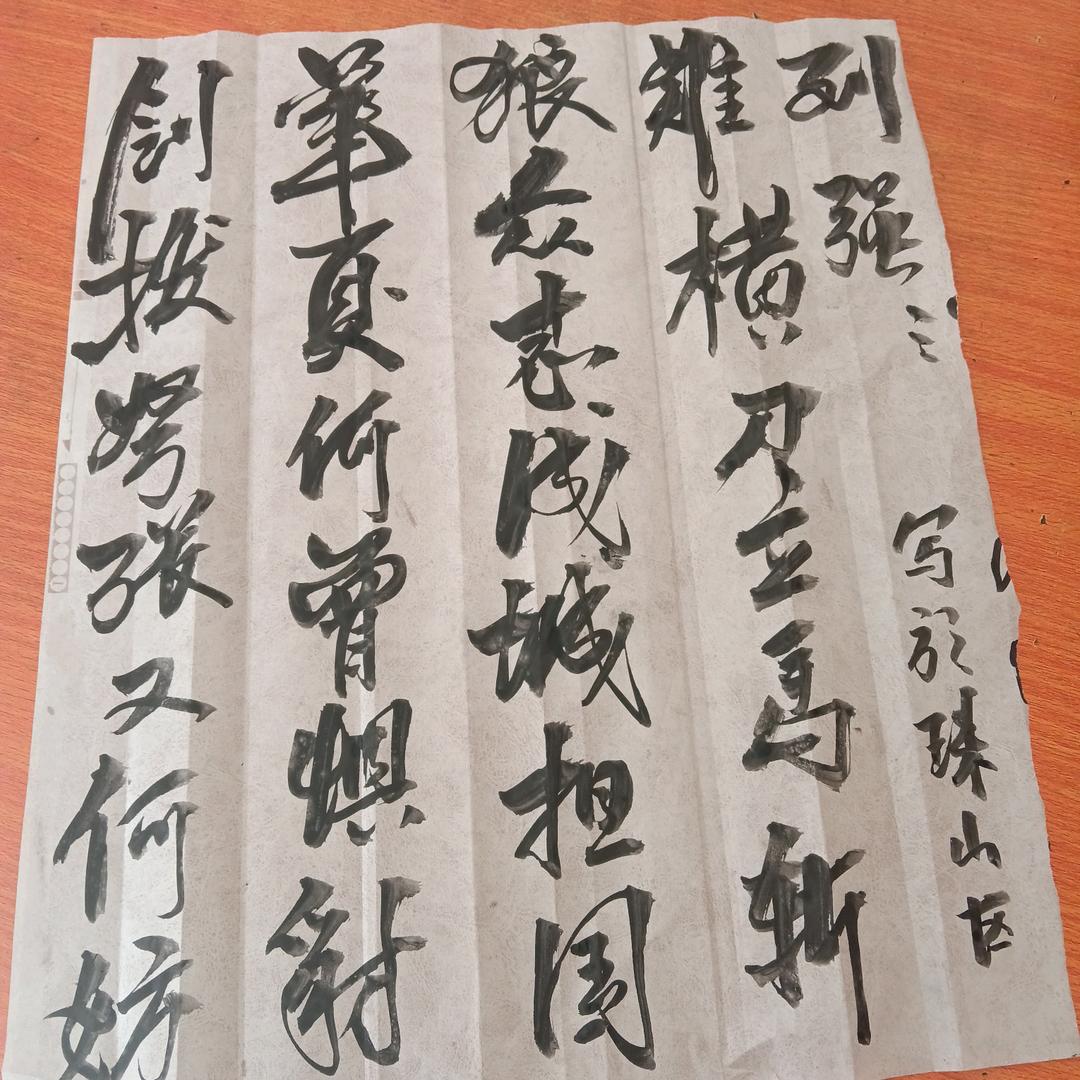 剑拔弩张又何妨
華夏何曾惧豺
狼众志成城担国
難横刀立马斩
列强
写於珠山区